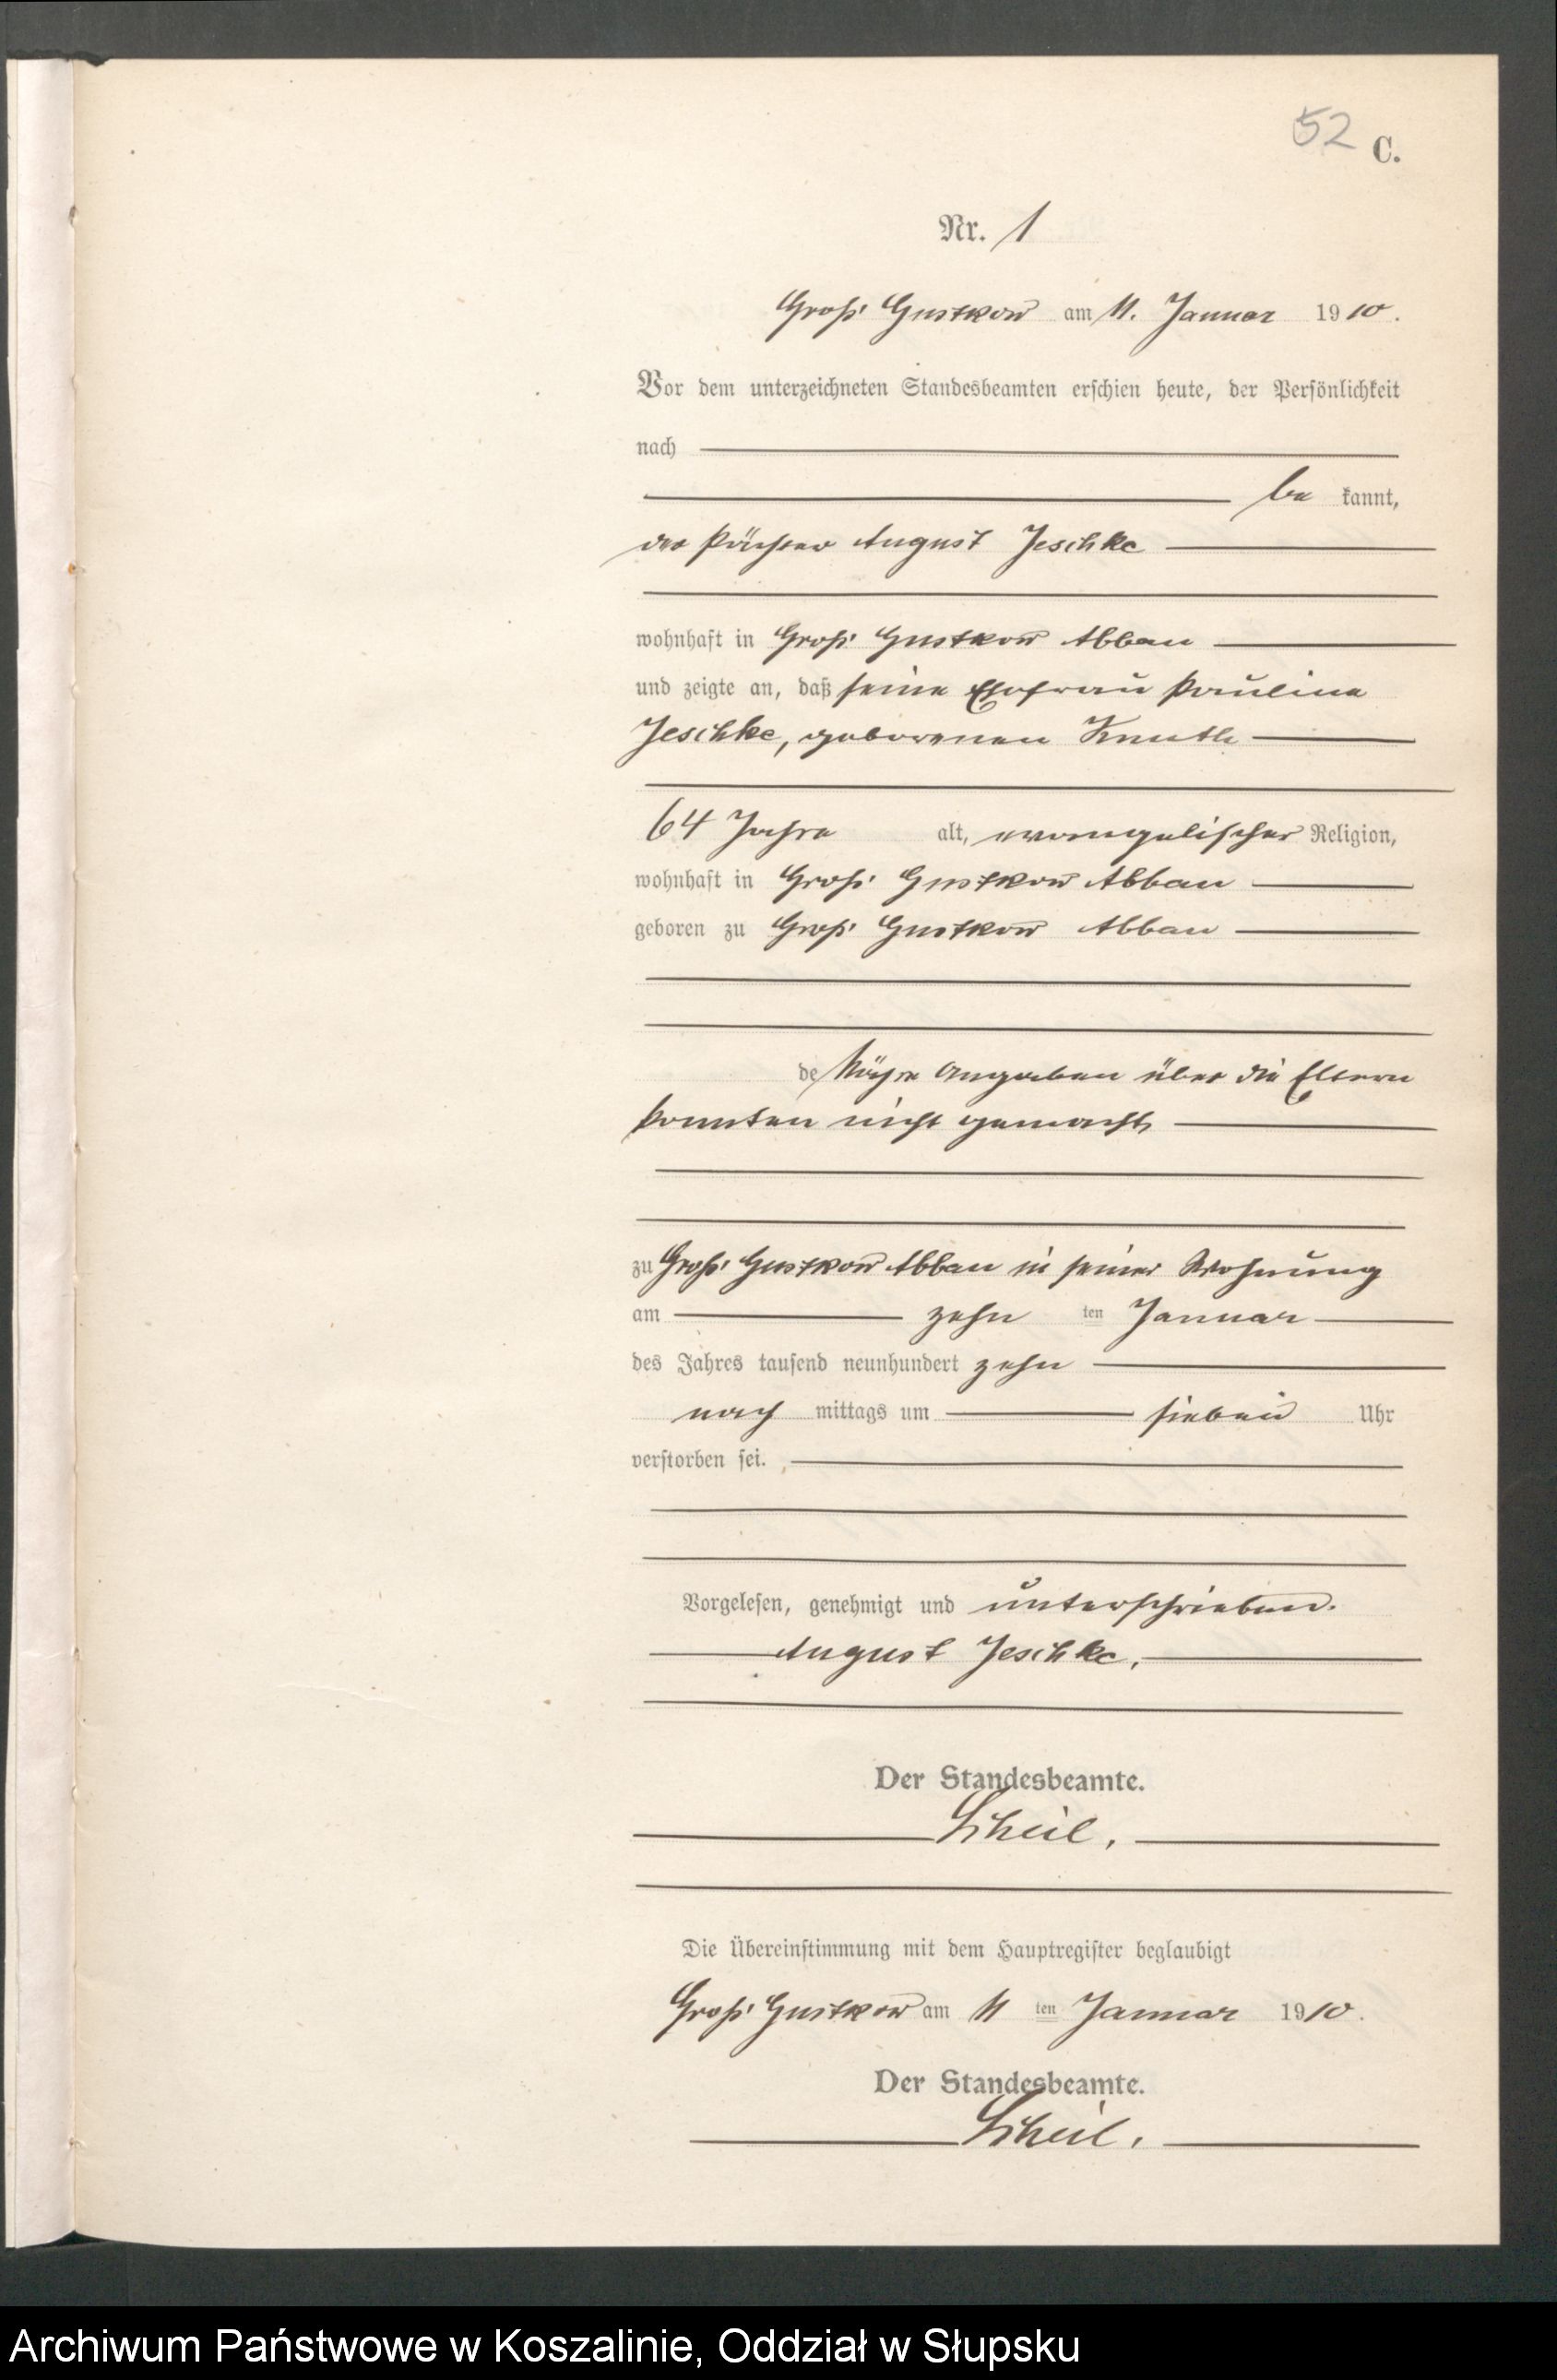 52 C.
Nr. 1
Groß Gustkow am 11. Januar 1910.
Vor dem unterzeichneten Standesbeamten erschien heute, der Persönlichkeit
nach
be kannt,
der Pächter August Jeschke
wohnhaft in Groß Gustkow Abbau
und zeigte an, daß seine Ehefrau Pauline
Jeschke, geborenen Knuth
64 Jahre alt, evangelischer Religion,
wohnhaft in Groß Gustkow Abbau
geboren zu Groß Gustkow Abbau
de Nähre Angaben über die Eltern
konnten nicht gemacht
zu Groß Gustkow Abbau in seiner Wohnung
am zehn ten Januar
des Jahres tausend neunhundert zehn
nach mittags um sieben Uhr
verstorben sei.
Vorgelesen, genehmigt und unterschrieben.
August Jeschke.
Der Standesbeamte.
Scheil.
Die Übereinstimmung mit dem Hauptregister beglaubigt
Groß Gustkow am 11 ten Januar 1910.
Der Standesbeamte.
Scheil.
Archiwum Państwowe w Koszalinie, Oddział w Słupsku